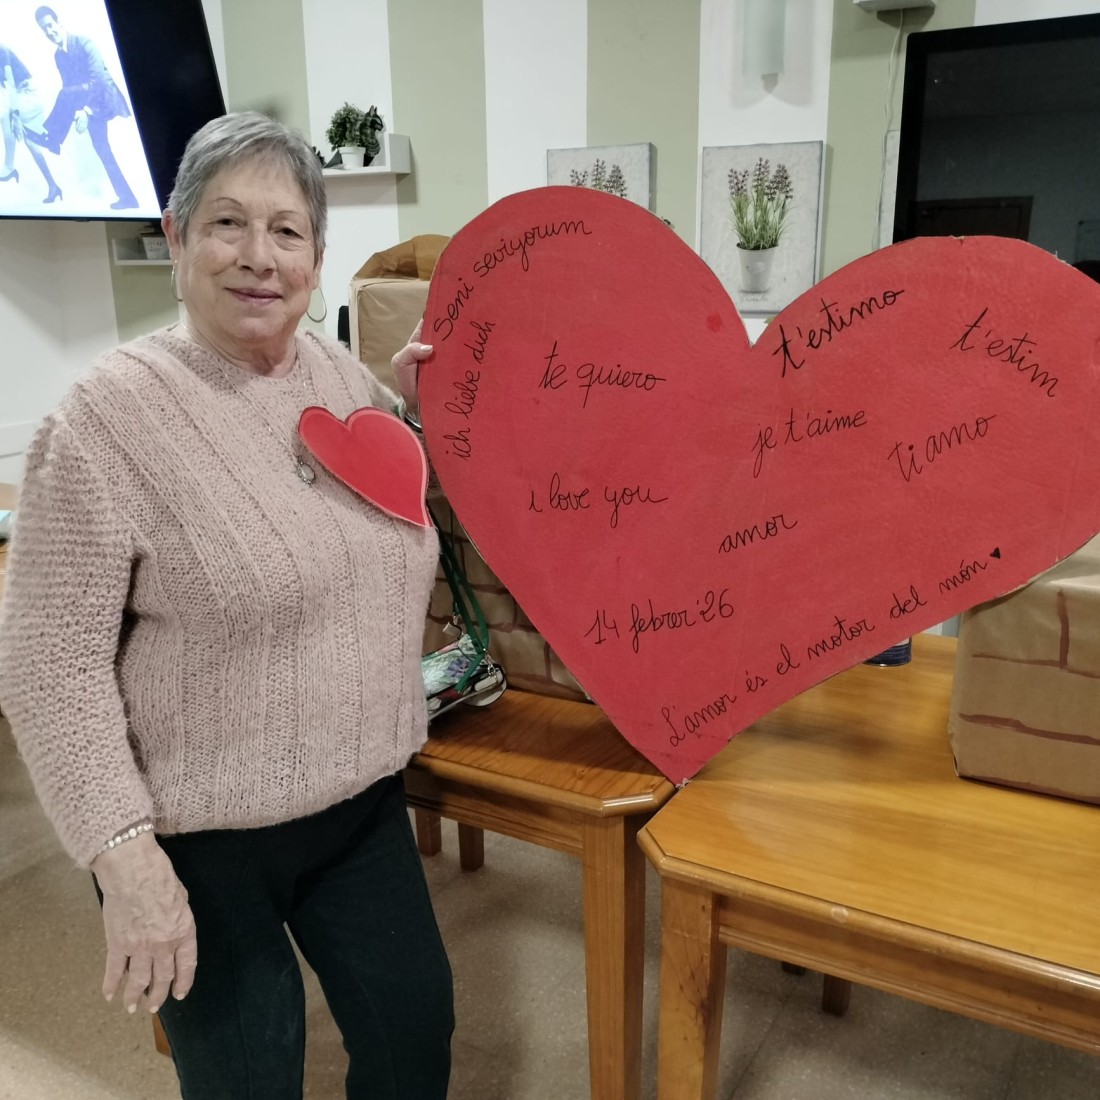 Seni seviyorum
ich liebe dich
te quiero
t'estimo
t'estim
je t'aime
ti amo
i love you
amor
14 febrer '26
L'amor és el motor del món.